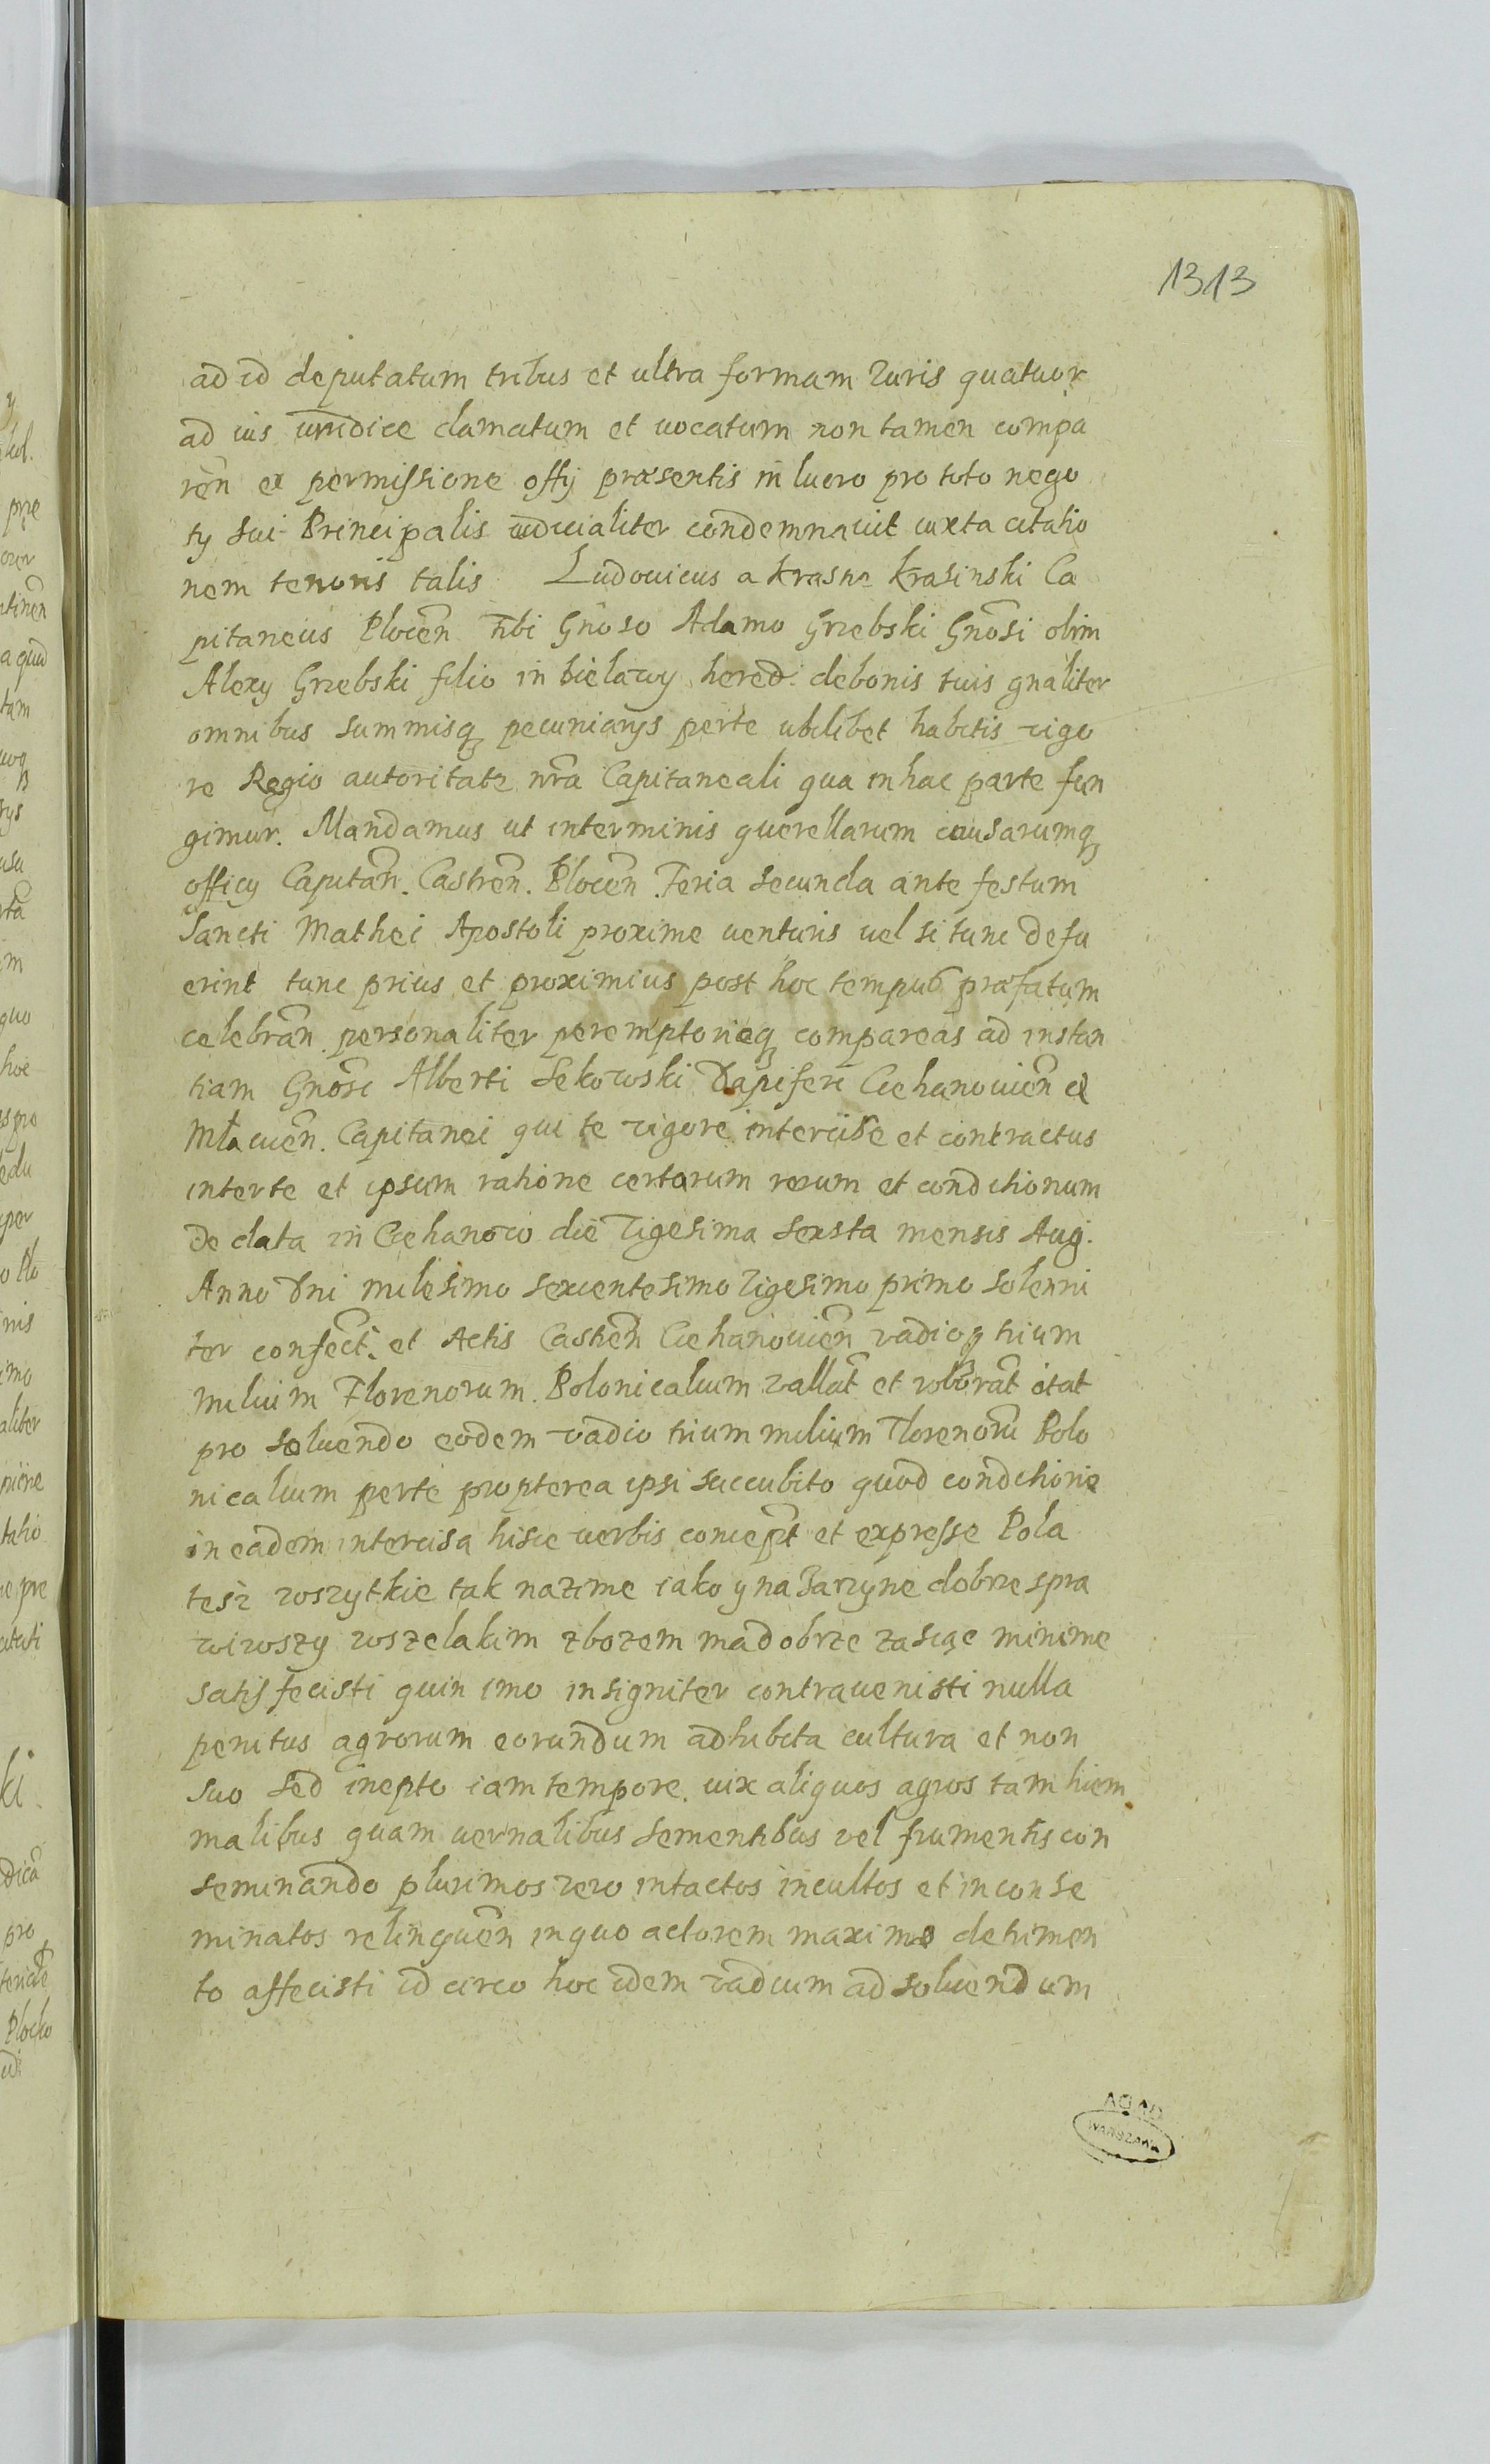 1313
ad id deputatum tribus et ultra formam Iuris quatuor
ad ius iuridice clamatum et uocatum non tamen compa
ren̄ ex permissione offij præsentis in lucro pro toto nego
tij sui Principalis iudicialiter condemnauit iuxta citatio
nem tenoris talis Ludouicus a Krasne Krasinski Ca
pitaneus Plocen̄ tibi Gnoso Adamo Grzebski Gnosi olim
Alexy Grzebski filio in bielawy hered. de bonis tuis gnaliter
omnibus summisq pecuniarys per te ubilibet habitis vigo
re Regio autoritate nra Capitaneali qua in hac parte fun
gimur. Mandamus ut in terminis querellarum causarumq
officy Capitan̄. Castren̄. Plocen̄. Feria secunda ante festum
Sancti Mathei Apostoli proxime uenturis uel si tunc defu
erint tunc prius et proximius post hoc tempus præfatum
celebran̄. personaliter peremptorieq compareas ad instan
tiam Gnosi Alberti Sekowski Dapiferi Ciehanouien̄ et
Mlauien̄. Capitanei qui te vigore intercise et contractus
inter te et ipsum ratione certarum rerum et conditionum
de data in Ciehanow die Vigesima sexsta mensis Aug.
Anno Dni milesimo sexcentesimo Vigesimo primo solenni
ter confect̄. et Actis Castren̄ Ciehanouien̄ vadioq trium
milium Florenorum. Polonicalium vallat̄ et roborat̄ citat
pro soluendo eodem vadio trium milium Florenoru Polo
nicalium per te propterea ipsi succubito quod conditione
in eadem intercisa hisce uerbis concept̄ et expresse Pola
tesz wszytkie tak na zime iako y na Jarzyne dobrze spra
wiwszy wszelakim zbozem ma dobrze zasiąc minime
satisfecisti quin imo insigniter contrauenisti nulla
penitus agrorum eorundum adhibita cultura et non
suo sed inepto iam tempore. uix aliquos agros tam hiem
malibus quam uernalibus sementibus vel frumentis con
seminando plurimos vero intactos incultos et inconse
minatos relinquen̄ in quo actorem maximo detrimen
to affecisti id circo hoc idem vadium ad soluendum
AGAD
WARSZAWA